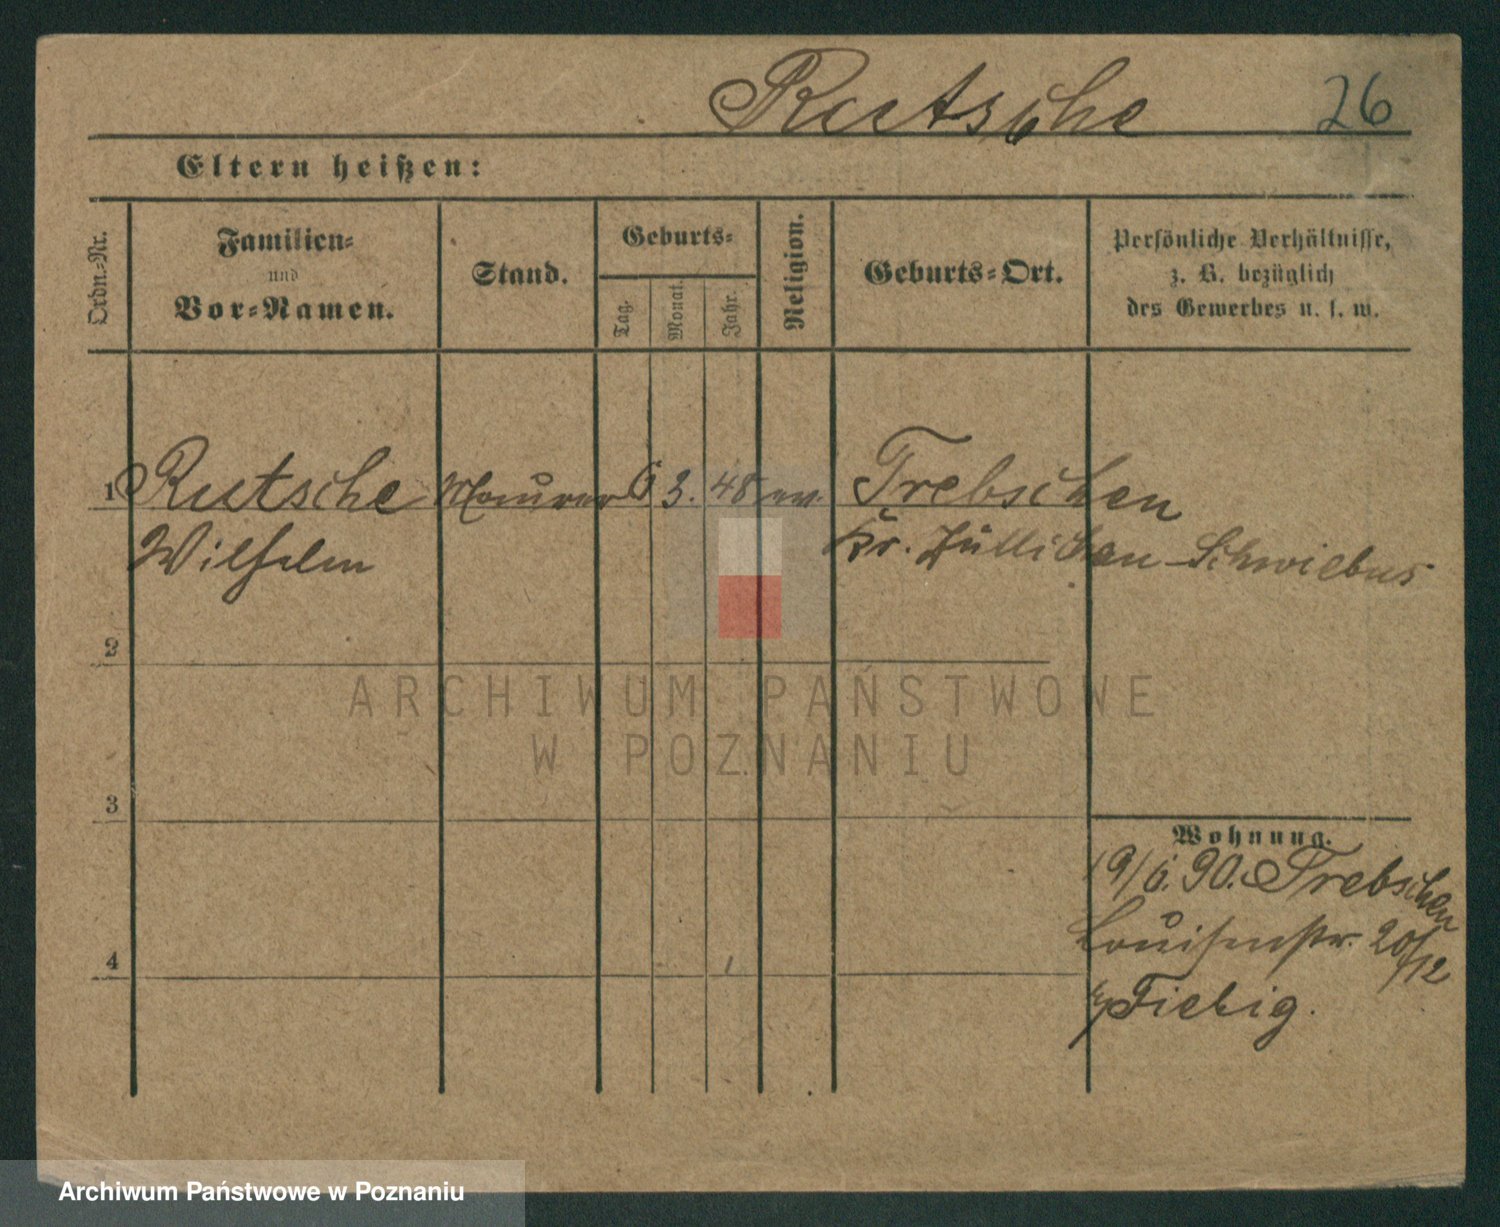 Rutsche 26
Eltern heißen:
Ordn.-Nr.
Familien-
und
Vor-Namen.
Stand.
Geburts-
Tag.
Monat.
Jahr.
Religion.
Geburts-Ort.
Persönliche Verhältnisse,
z. B. bezüglich
des Gewerbes u. s. w.
1 Rutsche Maurer 6 3. 48 ev. Trebschen
Wilhelm Kr. Züllichau-Schwiebus
2
ARCHIWUM PAŃSTWOWE
W POZNANIU
3
Wohnung.
19/6. 90. Trebschen
Louisenstr. 20/12
b/Fiebig.
4
Archiwum Państwowe w Poznaniu